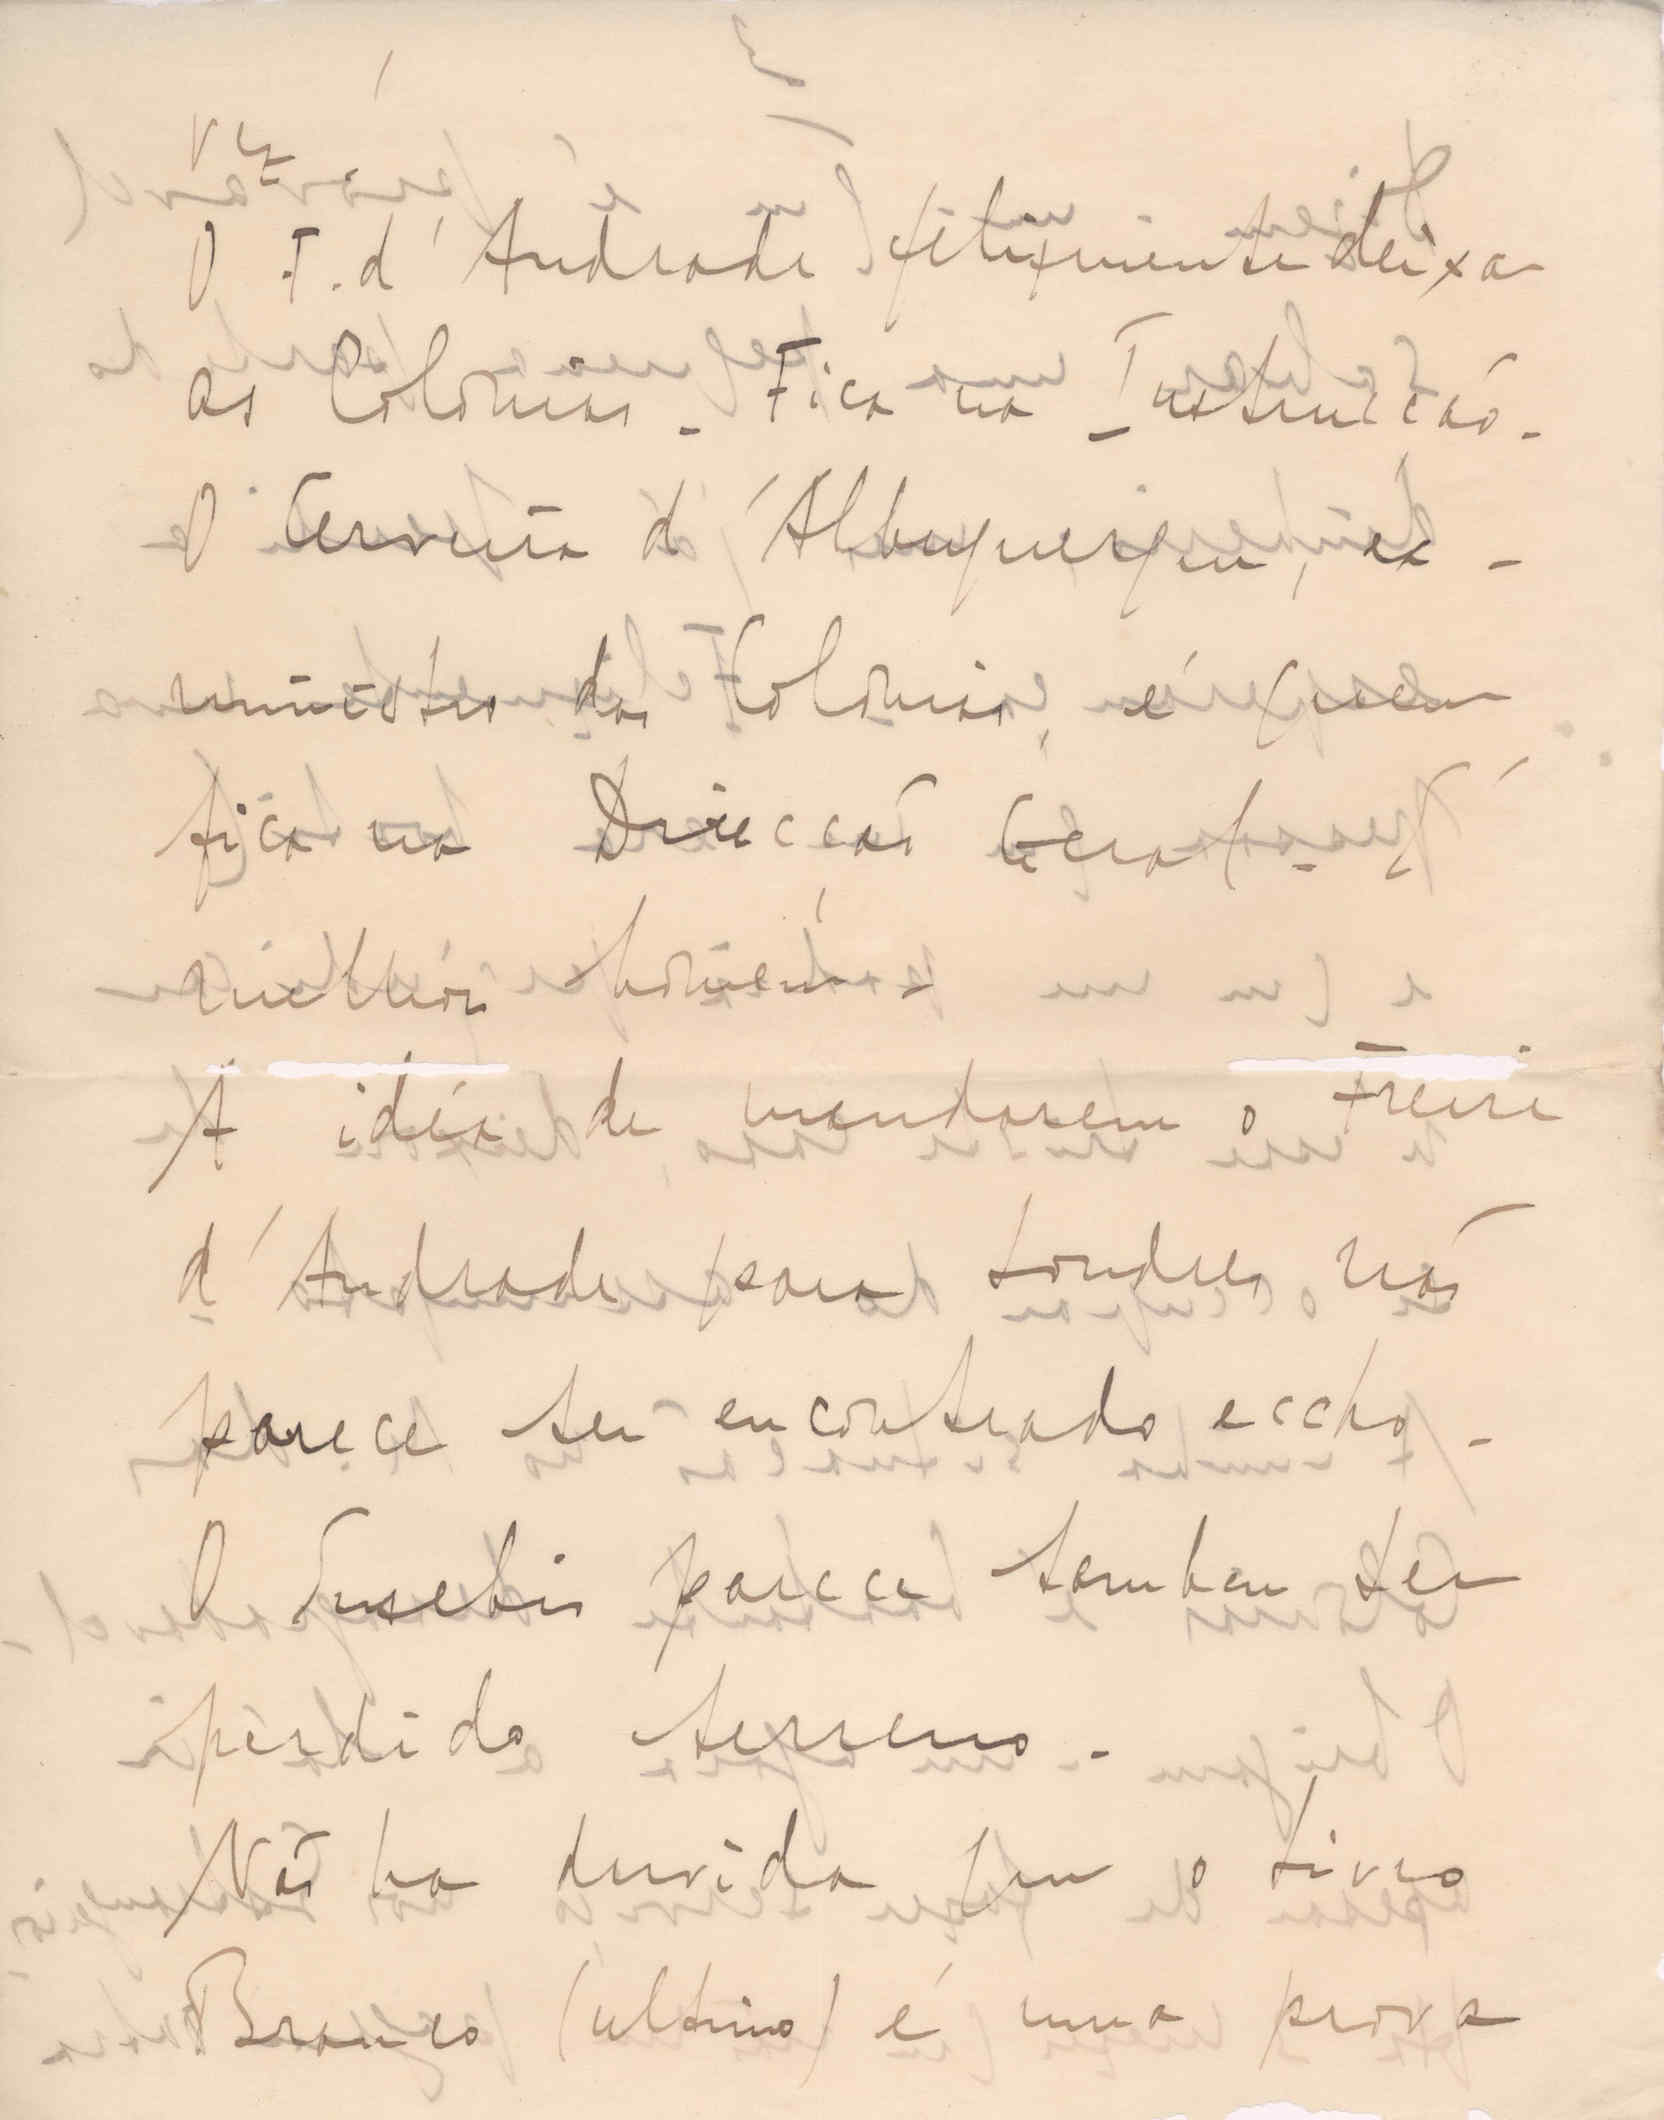 O F. d'Andrade felizmente deixa
as Colonias - Fica na Instrucção -
O Cerveira d'Albuquerque, ex-
ministro das Colonias, é quem
fica na Direcção Geral - É
melhor homem -
A idéa de mandarem o Freire
d'Andrade para Londres não
parece ter encontrado eccho -
O Eusebio parece tambem ter
perdido terreno -
Não ha duvida que o Livro
Branco (ultimo) é uma prova